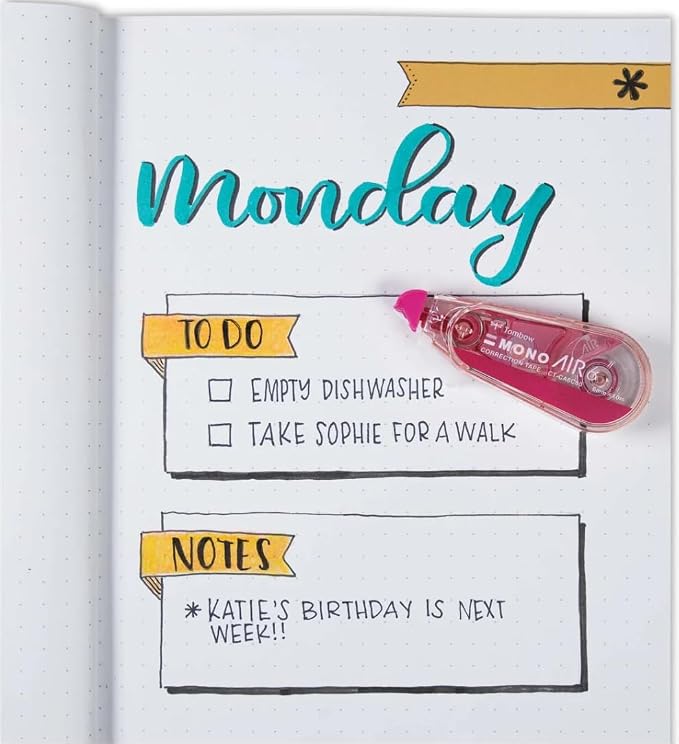 Monday
TO DO
Tombow
MONO AIR
CORRECTION TAPE
EMPTY DISHWASHER
TAKE SOPHIE FOR A WALK
NOTES
* KATIE'S BIRTHDAY IS NEXT
WEEK!!